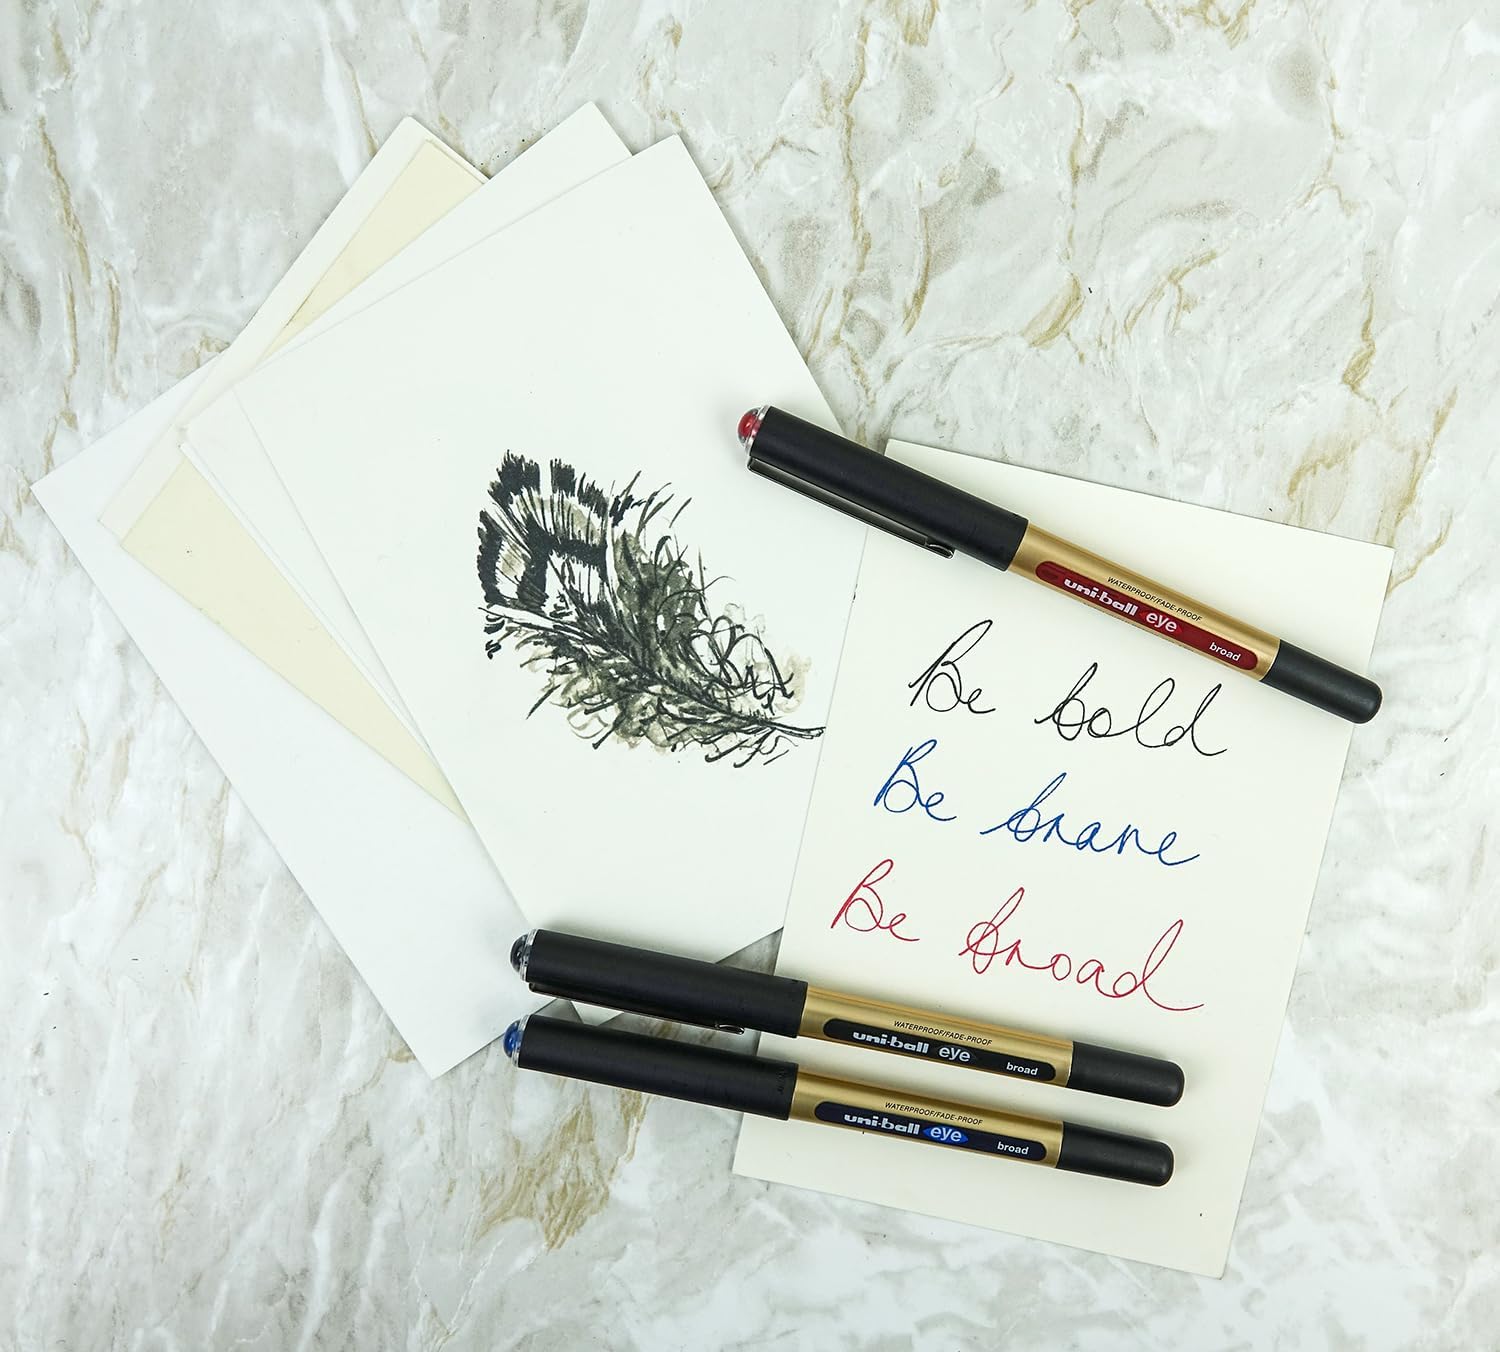 WATERPROOF/FADE-PROOF
uni-ball eye broad
Be bold
Be brave
Be broad
WATERPROOF/FADE-PROOF
uni-ball eye broad
WATERPROOF/FADE-PROOF
uni-ball eye broad